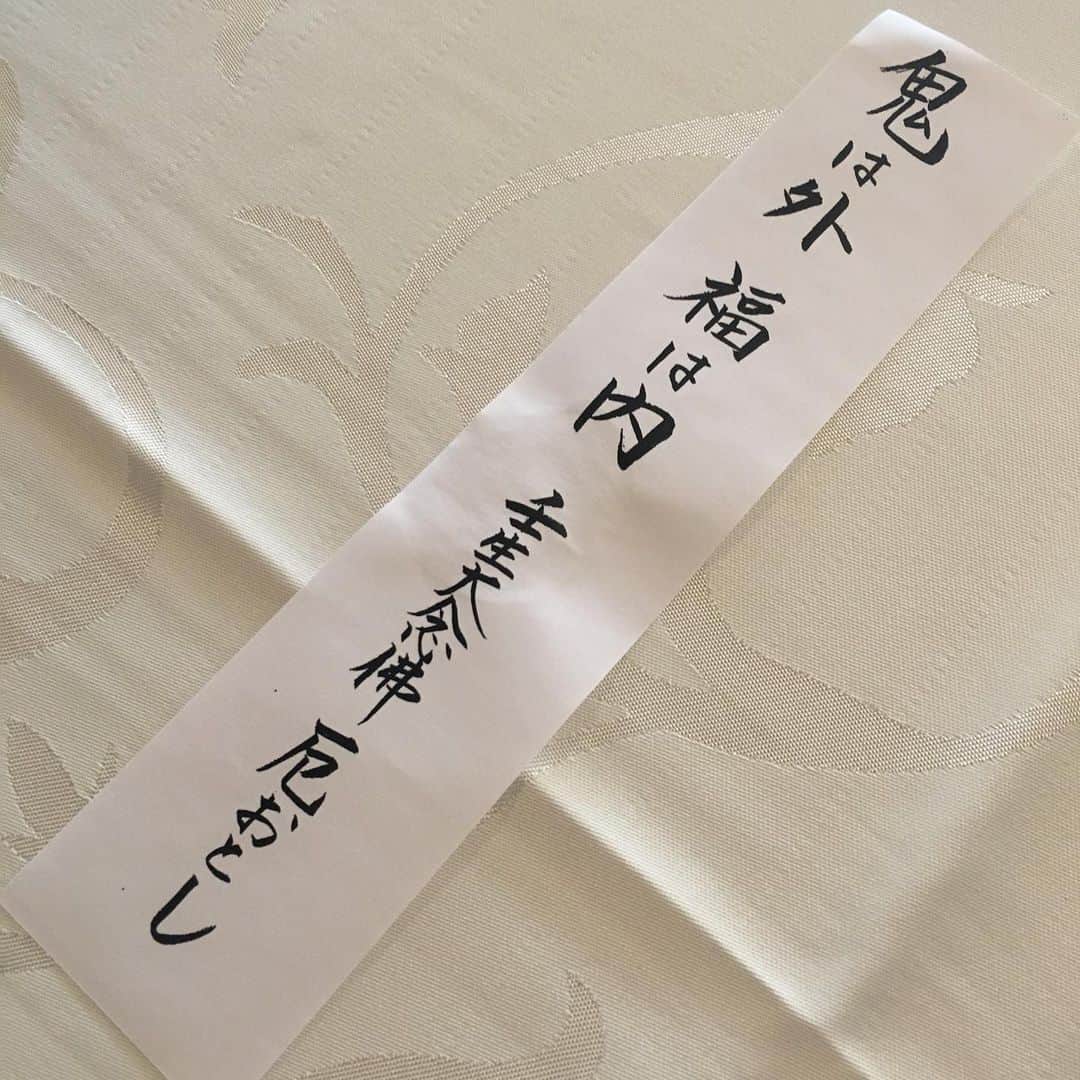 鬼は外 福は内 壬生大念佛 厄おとし